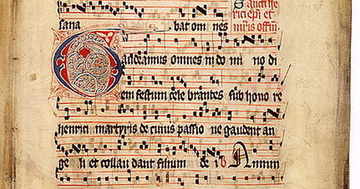 sana bat om nes
Sancti he
rici epi et
mris offm
Gaudeamus omnes in do mi no di
em festum cele brantes sub hono re
henrici martyris de cuius passio ne gaudent an
ge li et collau dant filium de